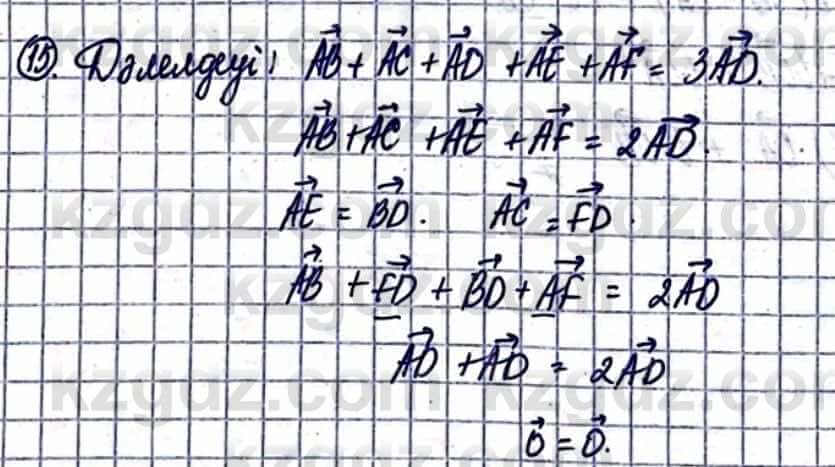 15. Дәлелдеуі: $\vec{AB} + \vec{AC} + \vec{AD} + \vec{AE} + \vec{AF} = 3\vec{AD}.$
$\vec{AB} + \vec{AC} + \vec{AE} + \vec{AF} = 2\vec{AD}.$
$\vec{AE} = \vec{BD}.$ $\vec{AC} = \vec{FD}.$
$\vec{AB} + \vec{FD} + \vec{BD} + \vec{AF} = 2\vec{AD}$
$\vec{AD} + \vec{AD} = 2\vec{AD}$
$\vec{0} = \vec{0}.$
kzgdz.com